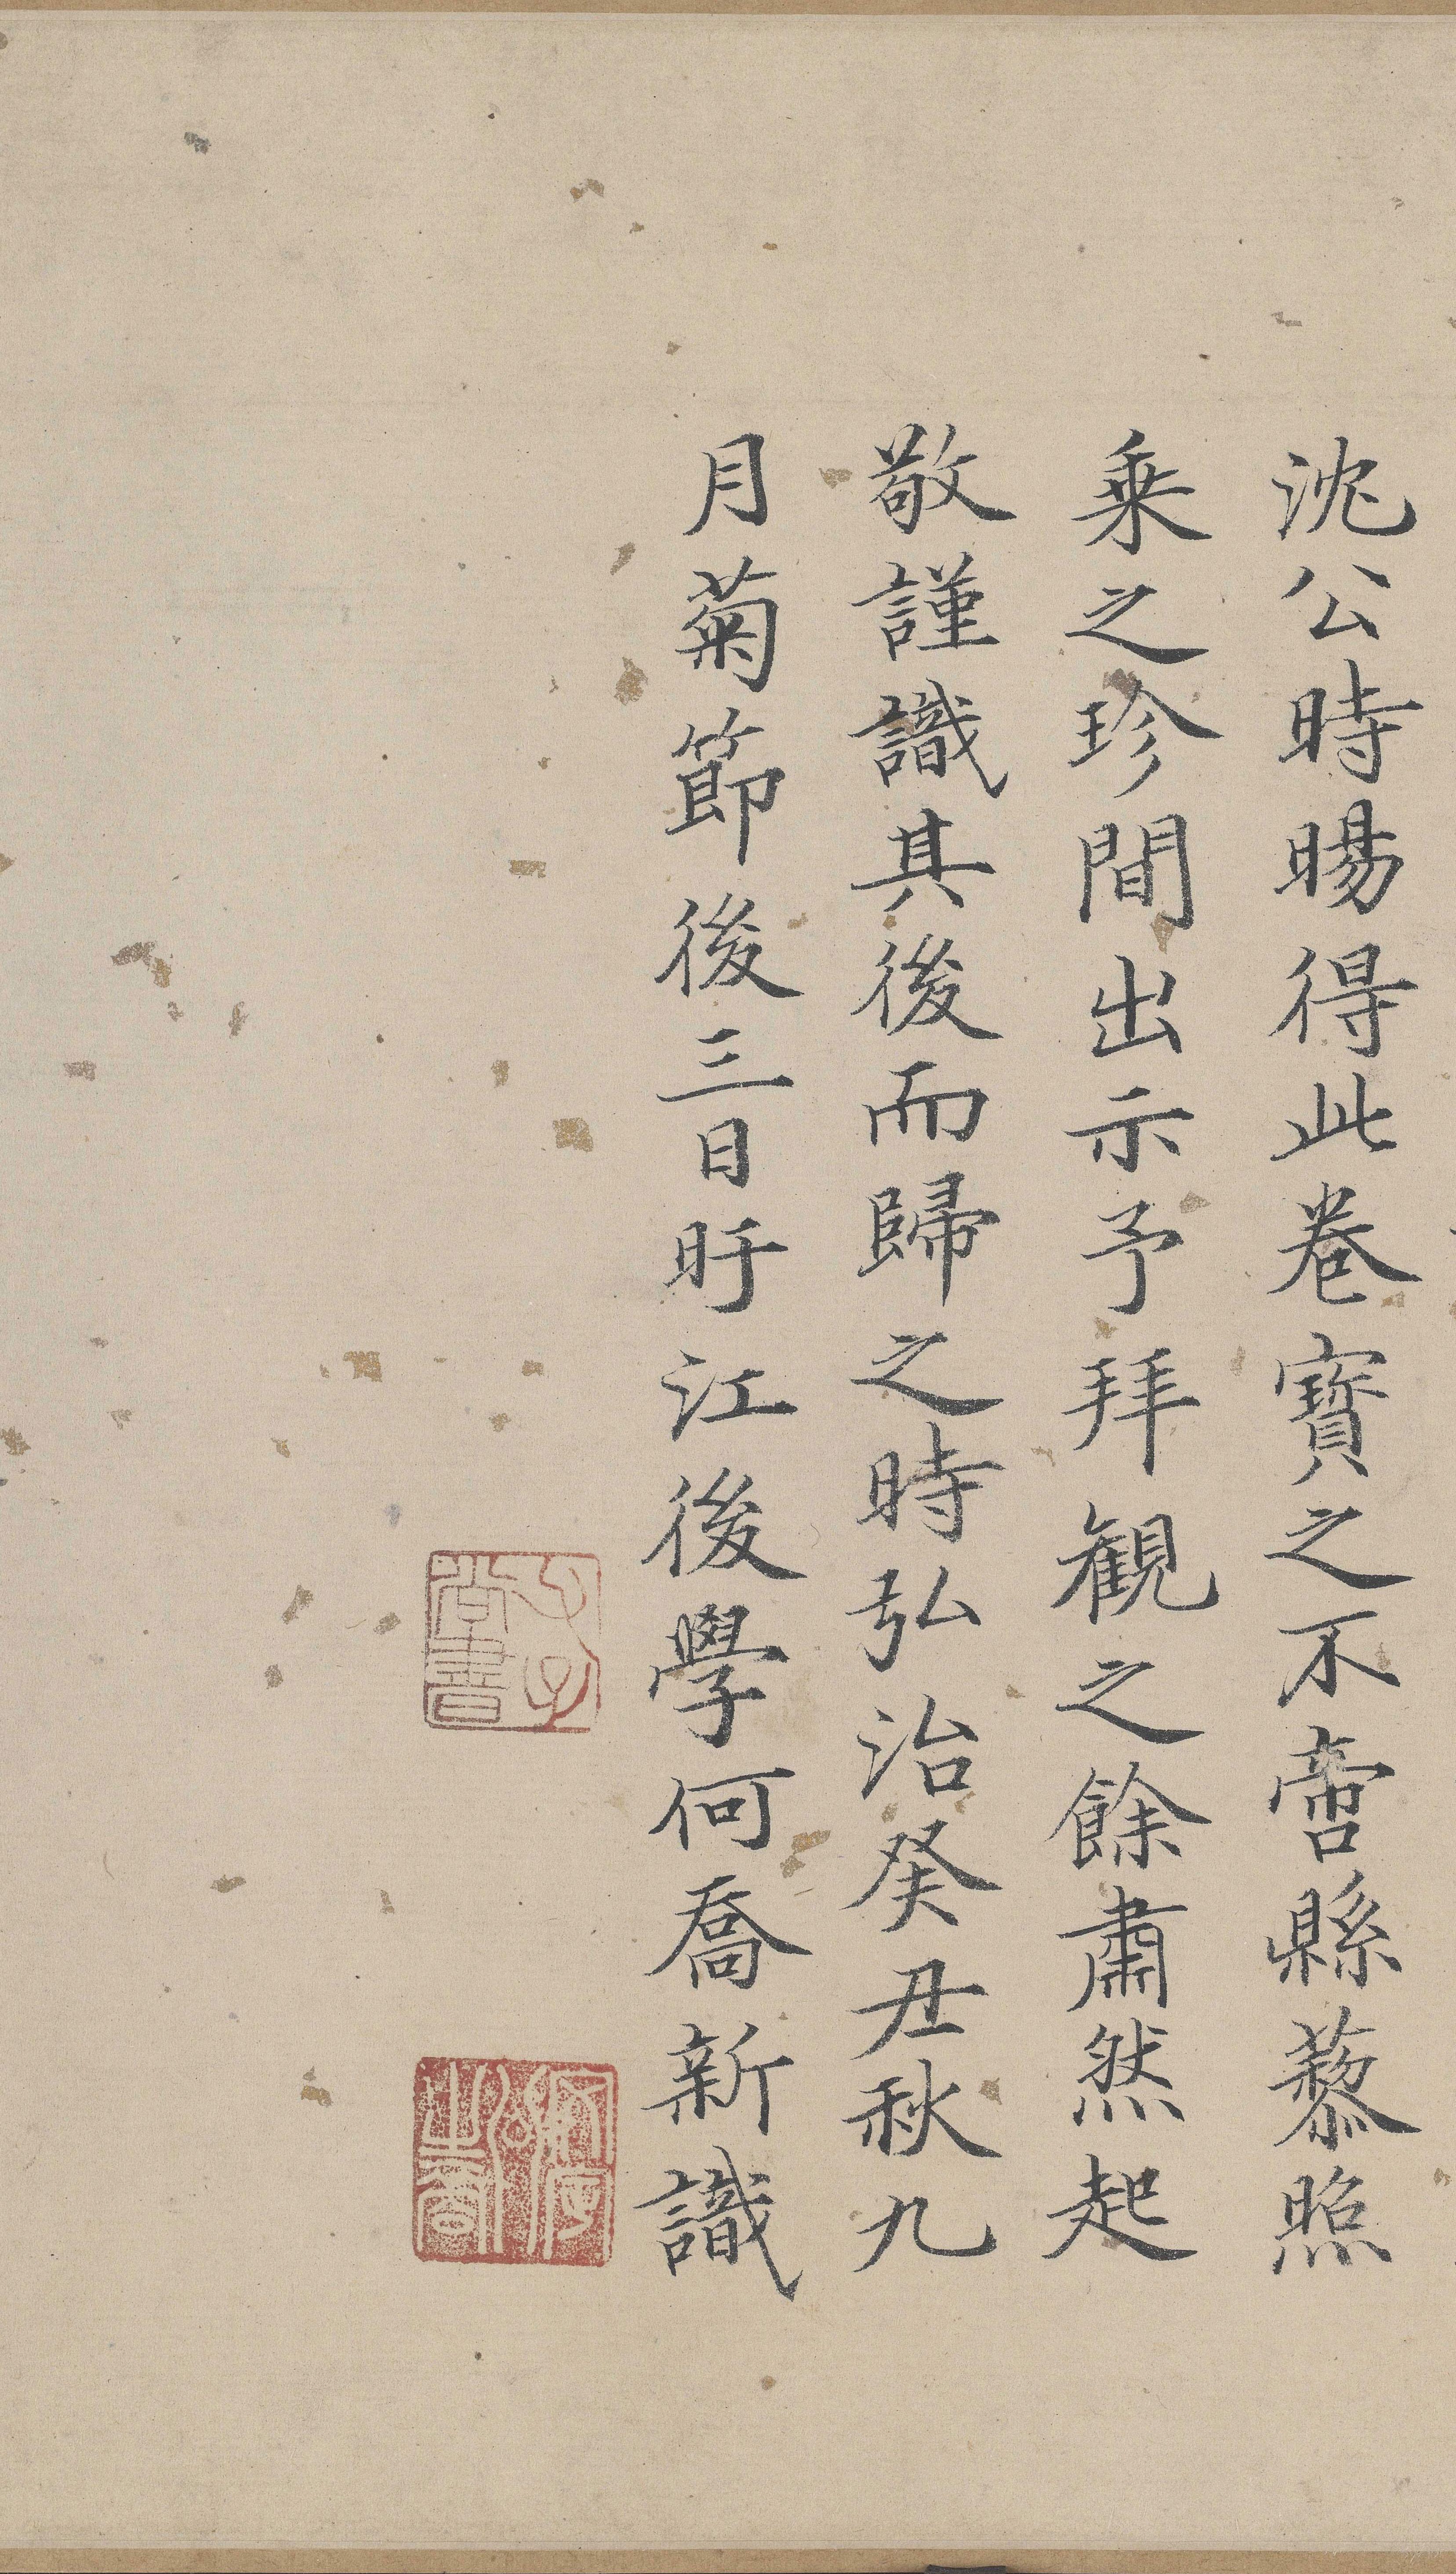 沈公時暘得此卷寶之不啻縣藜照
乗之珍間出示予拜觀之餘肅然起
敬謹識其後而歸之時弘治癸丑秋九
月菊節後三日盱江後學何喬新識